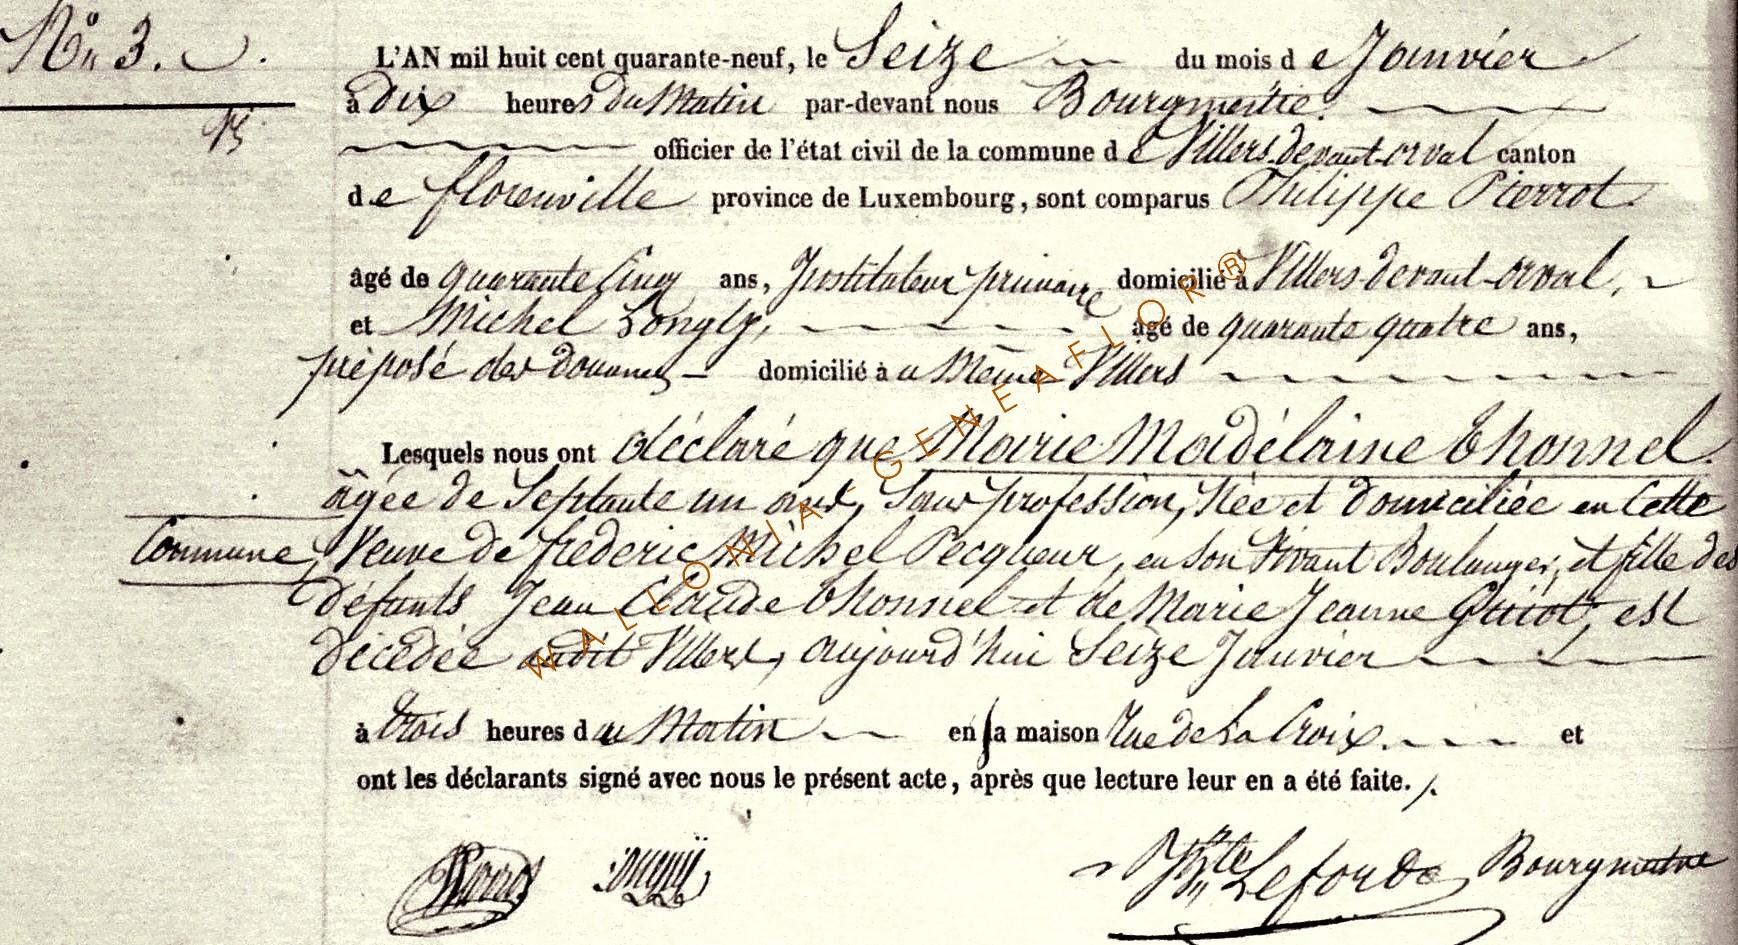 N° 3.
L'AN mil huit cent quarante-neuf, le Seize du mois de Janvier
à dix heures du Matin par-devant nous Bourgmestre.
officier de l'état civil de la commune de Villers-devant-orval canton
de florenville province de Luxembourg, sont comparus Philippe Pierrot
âgé de quarante Cinq ans, Instituteur primaire domicilié à Villers-devant-orval,
et Michel Longly, âgé de quarante quatre ans,
préposé des douanes domicilié à u Même Villers
Lesquels nous ont déclaré que Marie Madélaine Thonnel.
âgée de Septante un ans, Sans profession, Née et domiciliée en Cette
Commune, Veuve de frederic Michel Pecqueur, en Son Vivant Boulanger, et fille des
défunts Jean Claude Thonnel et de Marie Jeanne est
décédée audit Villers, aujourd'hui Seize Janvier
à trois heures du Matin en sa maison Rue de La Croix. et
ont les déclarants signé avec nous le présent acte, après que lecture leur en a été faite.
Pierrot Longly Bourgmestre
WALLONIA-GENEAFLOR®